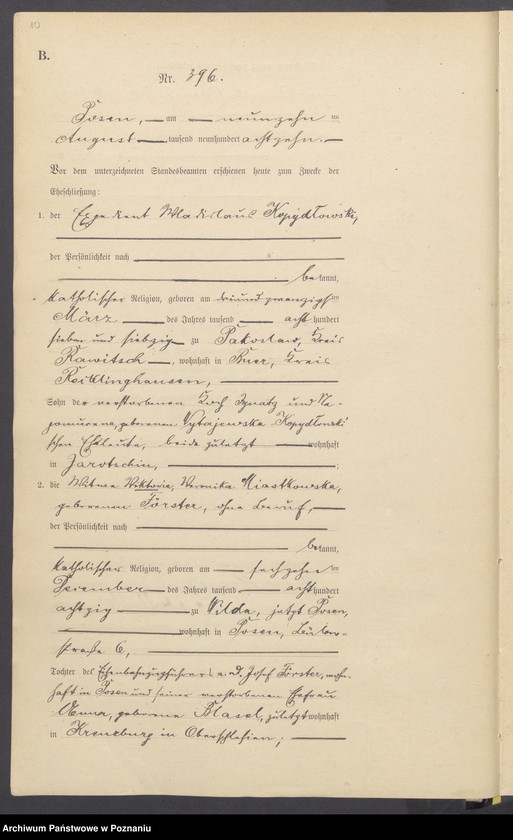 B.
Nr. 396.
Posen, am neunzehnten
August tausend neunhundert achtzehn.
Vor dem unterzeichneten Standesbeamten erschienen heute zum Zwecke der
Eheschließung:
1. der Expedient Wladislaus Kopydlowski,
der Persönlichkeit nach
bekannt,
katholischer Religion, geboren am dreiundzwanzigsten
März des Jahres tausend acht hundert
sieben und siebzig zu Pakoslaw, Kreis
Rawitsch, wohnhaft in Buer, Kreis
Recklinghausen,
Sohn der verstorbenen Koch Ignatz und Ne-
pomucena, geborenen Kopydlowski
schen Eheleute, beide zuletzt wohnhaft
in Jarotschin, ;
2. die Witwe Viktoria, Veronika Miastkowska,
geborenen Förster, ohne Beruf,
der Persönlichkeit nach
bekannt,
katholischer Religion, geboren am sechzehnten
Dezember des Jahres tausend acht hundert
achtzig zu Wilda, jetzt Posen,
wohnhaft in Posen, Bülow-
straße 6,
Tochter des Eisenbahnzugführers a. D. Josef Förster, wohn-
haft in Posen und seiner verstorbenen Ehefrau
Anna, geborene Blasel, zuletzt wohnhaft
in Kreuzburg in Oberschlesien;
Archiwum Państwowe w Poznaniu